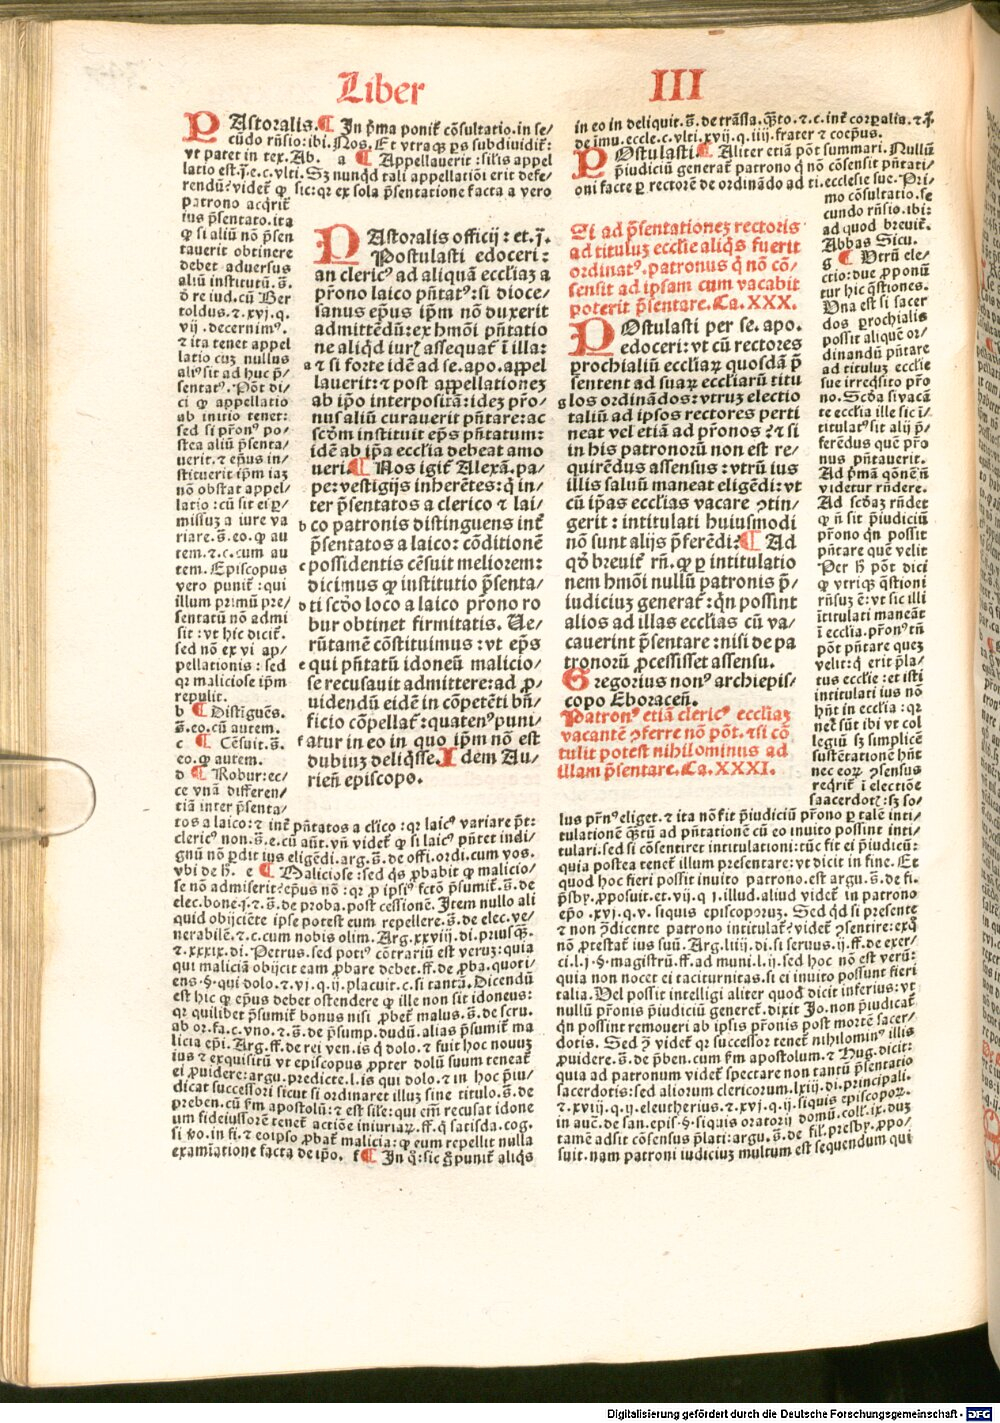 Liber III
PAstoralis. ¶ In p̄ma ponit᷑ cōsultatio. in se/
cūdo rn̄sio: ibi. Nos. Et vtraqꝫ ꝑs subdiuidit᷑:
vt patet in tex. Ab. a ¶ Appellauerit: sil̄is appel
latio est. j̄. e. c. vlti. Sꝫ nunqd̄ tali appellatiōi erit defe/
rendū? videt᷑ ꝙ sic: qꝛ ex sola p̄sentatione facta a vero
patrono acqrit᷑
ius p̄sentato. ita
ꝙ si aliū nō p̄sen
tauerit obtinere
debet aduersus
aliū institutū. s̄.
d̄ re iud. cū Ber
toldus. ⁊. xvj. q.
vij. decernimꝰ.
⁊ ita tenet appel
latio cuꝫ nullus
aliꝰ sit ad huc p̄/
sentatꝰ. Pōt di/
ci ꝙ appellatio
ab initio tenet:
sed si pr̄onꝰ po/
stea aliū p̄senta/
uerit. ⁊ ep̄us in/
stituerit ip̄m iaꝫ
nō obstat appel/
latio: cū sit ei ꝑ/
missuꝫ a iure va
riare. s̄. eo. ꝙ au
tem. ⁊. c. cum au
tem. Episcopus
vero punit᷑: qui
illum primū pre/
sentatū nō admi
sit: vt hic dicit᷑.
sed nō ex vi ap/
pellationis: sed
qꝛ maliciose ip̄m
repulit.
b ¶ Distīguēs.
s̄. eo. cū autem.
c ¶ Cēsuit. s̄.
eo. ꝙ autem.
d ¶ Robur: ec/
ce vnā differen/
tiā inter p̄senta/
tos a laico: ⁊ int᷑ pn̄tatos a cl̄ico: qꝛ laicꝰ variare pōt:
clericꝰ non. s̄. e. cū aūt. vn̄ videt᷑ ꝙ si laicꝰ pn̄tet indi/
gnū nō ꝑdit ius eligēdi. arg. s̄. de offi. ordi. cum vos.
vbi de h̄. e ¶ Maliciose: sed qs̄ ꝓbabit ꝙ malicio/
se nō admiserit? ep̄us nō: qꝛ ꝑ ipsiꝰ fctō p̄sumit᷑. s̄. de
elec. bone. j. ⁊. s̄. de proba. post cessionē. Item nullo ali
quid obijciēte ipse potest cum repellere. s̄. de elec. ve/
nerabilē. ⁊. c. cum nobis olim. Arg. xxviij. di. priusqꝫ.
⁊. xxxix. di. Petrus. sed potiꝰ cōtrariū est veruꝫ: quia
qui maliciā obijcit eam ꝓbare debet. ff. de ꝓba. quoti/
ens. §. qui dolo. ⁊. vj. q. ij. placuit. c. si tantā. Dicendū
est hic ꝙ ep̄us debet ostendere ꝙ ille non sit idoneus:
qꝛ quilibet p̄sumit᷑ bonus nisi ꝓbet᷑ malus. s̄. de scru.
ab or. fa. c. vno. ⁊. s̄. de p̄sump. dudū. alias p̄sumit᷑ ma
licia ep̄i. Arg. ff. de rei ven. is q̄ dolo. ⁊ fuit hoc nouuꝫ
ius ⁊ exquisitū vt episcopus ꝓpter dolū suum teneat᷑
ei ꝓuidere: argu. predicte. l. is qui dolo. ⁊ in hoc p̄iu/
dicat successori sicut si ordinaret illuꝫ sine titulo. s̄. de
preben. cū s̄m apostolū: ⁊ est sil̄e: qui em̄ recusat idone
um fideiussorē tenet᷑ actiōe iniuriaꝝ. ff. q̄ satisda. cog.
si v̄o. in fi. ⁊ eoipso ꝓbat᷑ malicia: ꝙ eum repellit nulla
examīatione facta de ip̄o. f ¶ In q̄: sic g̊ punit᷑ aliqs̄
PAstoralis officij: et. j̄.
Postulasti edoceri:
an clericꝰ ad aliquā eccl̄iaꝫ a
pr̄ono laico pn̄tatꝰ: si dioce/
sanus ep̄us ip̄m nō duxerit
admittēdū: ex hmōi pn̄tatio
ne aliqd̄ iurꝭ assequat᷑ ī illa:
a ⁊ si forte idē ad se. apo. appel
lauerit: ⁊ post appellationeꝫ
ab ip̄o interpositā: ideꝫ pr̄o/
nus aliū curauerit pn̄tare: ac
scd̄m instituit ep̄s pn̄tatum:
idē ab ip̄a eccl̄ia debeat amo
ueri. ¶ Nos igit᷑ Alexā. pa/
pe: vestigijs inherētes: q̄ in/
ter p̄sentatos a clerico ⁊ lai/
b co patronis distinguens int᷑
p̄sentatos a laico: cōditionē
c possidentis cēsuit meliorem:
dicimus ꝙ institutio p̄senta/
d ti scd̄o loco a laico pr̄ono ro
bur obtinet firmitatis. Ue/
rūtamē cōstituimus: vt ep̄s
e qui pn̄tatū idoneū malicio/
se recusauit admittere: ad ꝓ/
uidendū eidē in cōpetēti bn̄/
ficio cōpellat᷑: quatenꝰ puni/
f atur in eo in quo ip̄m nō est
dubiuꝫ deliq̄sse. Idem Au/
rien̄ episcopo.
in eo in deliquit. s̄. de trāssa. q̄sto. ⁊. c. int᷑ corꝑalia. ⁊. j̄.
de imu. eccle. c. vlti. xvij. q. iiij. frater ⁊ coep̄us.
POstulasti. ¶ Aliter etiā pōt summari. Nullū
p̄iudiciū generat᷑ patrono q̄ nō cōsensit pn̄tati/
oni facte ꝑ rectorē de ordinādo ad ti. ecclesie sue. Pri/
mo cōsultatio. se
cundo rn̄sio. ibi:
ad quod breuit᷑.
Abbas Sicu.
g ¶ Utrū ele/
ctio: due ꝓponū
tur hic q̄stiones.
Una est si sacer
dos ꝑrochialis
possit aliquē or/
dinandū pn̄tare
ad tituluꝫ eccl̄ie
sue irreq̄sito pr̄o
no. Scd̄a si vacā
te eccl̄ia ille sic ī/
titulatꝰ sit alij p̄/
ferēdus quē pr̄o
nus pn̄tauerit.
Ad p̄mā qōnē n̄
videtur rn̄dere.
Ad scd̄aꝫ rn̄det
ꝙ n̄ sit p̄iudiciū
pr̄ono qn̄ possit
pn̄tare quē velit
Per h̄ pōt dici
ꝙ vtriqꝫ q̄stioni
rn̄suꝫ ē: vt sic illi
ītitulati maneāt
ī eccl̄ia. pr̄onꝰ tn̄
pōt pn̄tare queꝫ
velit: q̄ erit p̄la/
tus eccl̄ie: et isti
intitulati ius nō
hn̄t in eccl̄ia: qꝛ
nec sūt ibi vt col
legiū sꝫ simplicē
sustētationē hn̄t
nec eoꝝ ꝯsensus
reqrit᷑ ī electiōe
sacerdotꝭ: sꝫ so/
lus pr̄nꝰ eliget. ⁊ ita nō fit p̄iudiciū pr̄ono ꝑ talē inti/
tulationē q̄tū ad pn̄tationē cū eo inuito possint inti/
tulari. sed si cōsentiret intitulationi: tūc fit ei p̄iudiciū:
quia postea tenet᷑ illum presentare: vt dicit in fine. Et
quod hoc fieri possit inuito patrono. est argu. s̄. de fi.
p̄sby. ꝓposuit. et. vij. q j. illud. aliud videt᷑ in patrono
ep̄o. xvj. q. v. siquis episcoporuꝫ. Sed qd̄ si presente
⁊ non ꝯ̄dicente patrono intitulat᷑? videt᷑ ꝯsentire: exq̄
nō ꝓtestat᷑ ius suū. Arg. liiij. di. si seruus. ij. ff. de exer/
ci. l. j. §. magistrū. ff. ad muni. l. ij. sed hoc nō est verū:
quia non nocet ei taciturnitas. si ei inuito possunt fieri
talia. Uel possit intelligi aliter quod dicit inferius: vt
nullū pr̄onis p̄iudiciū generet᷑. dixit Jo. non p̄iudicat᷑
qn̄ possint remoueri ab ipsis pr̄onis post mortē sacer/
dotis. Sed ꝯ̄ videt᷑ qꝛ successor tenet᷑ nihilominꝰ illis
ꝓuidere. s̄. de p̄ben. cum s̄m apostolum. ⁊ Hug. dicit:
quia ad patronum videt᷑ spectare non tantū p̄sentatio
sacerdotis: sed aliorum clericorum. lxiij. di. principali.
⁊. xviij. q. ij. eleutherius. ⁊. xvj. q. ij. siquis episcopoꝝ.
in auc. de san. epis. §. siquis oratorij domū. coll. ix. duꝫ
tamē adsit cōsensus p̄lati: argu. s̄. de fil. presby. ꝓpo/
suit. nam patroni iudiciuꝫ multum est sequendum qui
Si ad p̄sentationeꝫ rectoris
ad tituluꝫ eccl̄ie aliqs̄ fuerit
ordinatꝰ. patronus q̄ nō cō/
sensit ad ipsam cum vacabit
poterit p̄sentare. Ca. XXX.
POstulasti per se. apo.
edoceri: vt cū rectores
prochialiū eccl̄iaꝝ quosdā p̄
sentent ad suaꝝ eccl̄iarū titu
g los ordinādos: vtruꝫ electio
taliū ad ipsos rectores perti
neat vel etiā ad pr̄onos? ⁊ si
in his patronorū non est re/
quirēdus assensus: vtrū ius
illis saluū maneat eligēdi: vt
cū ip̄as eccl̄ias vacare ꝯtin/
gerit: intitulati huiusmodi
nō sunt alijs p̄ferēdi: ¶ Ad
qd̄ breuit᷑ rn̄. ꝙ ꝑ intitulatio
nem hmōi nullū patronis p̄/
iudiciuꝫ generat᷑: qn̄ possint
alios ad illas eccl̄ias cū va/
cauerint p̄sentare: nisi de pa
tronorū ꝓcessisset assensu.
Gregorius nonꝰ archiepis/
copo Eboracen̄.
Patronꝰ etiā clericꝰ eccl̄iaꝫ
vacantē ꝯferre nō pōt. ⁊ si cō
tulit potest nihilominus ad
illam p̄sentare. Ca. XXXI.
Digitalisierung gefördert durch die Deutsche Forschungsgemeinschaft - DFG